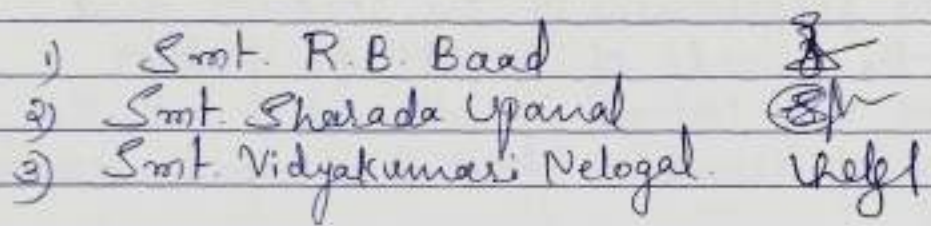 1) Smt. R.B. Baad
2) Smt. Sharada Upanal
3) Smt. Vidyakumari Nelogal.